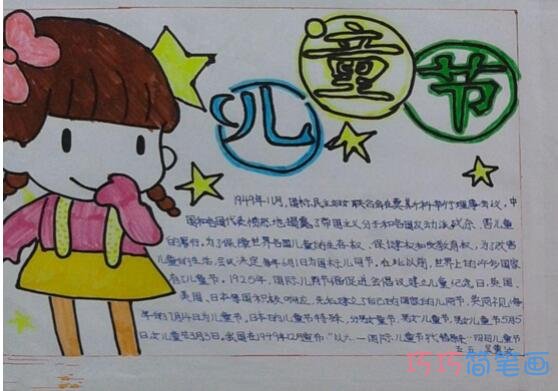 儿童节
1949年11月,国际民主妇女联合会在莫斯科举行理事会议,中
国和各国代表愤怒地揭露了帝国主义分子和各国反动派残杀、害儿童
的罪行。为了保障世界各国儿童的生存权、保健权和受教育权,为了改善
儿童的生活,会议决定每年6月1日为国际儿童节。在此以前,世界上的许多国家
有了儿童节。1925年,国际儿童节幸福促进会倡议建立儿童纪念日,英国、
美国、日本等国
年的7月14日为儿童节。日本的儿童节特殊,分男女童节
日,女儿童节3月3日。我国在1949年12月宣布"以六一国际儿童节代替原来四四儿童节
巧巧简笔画